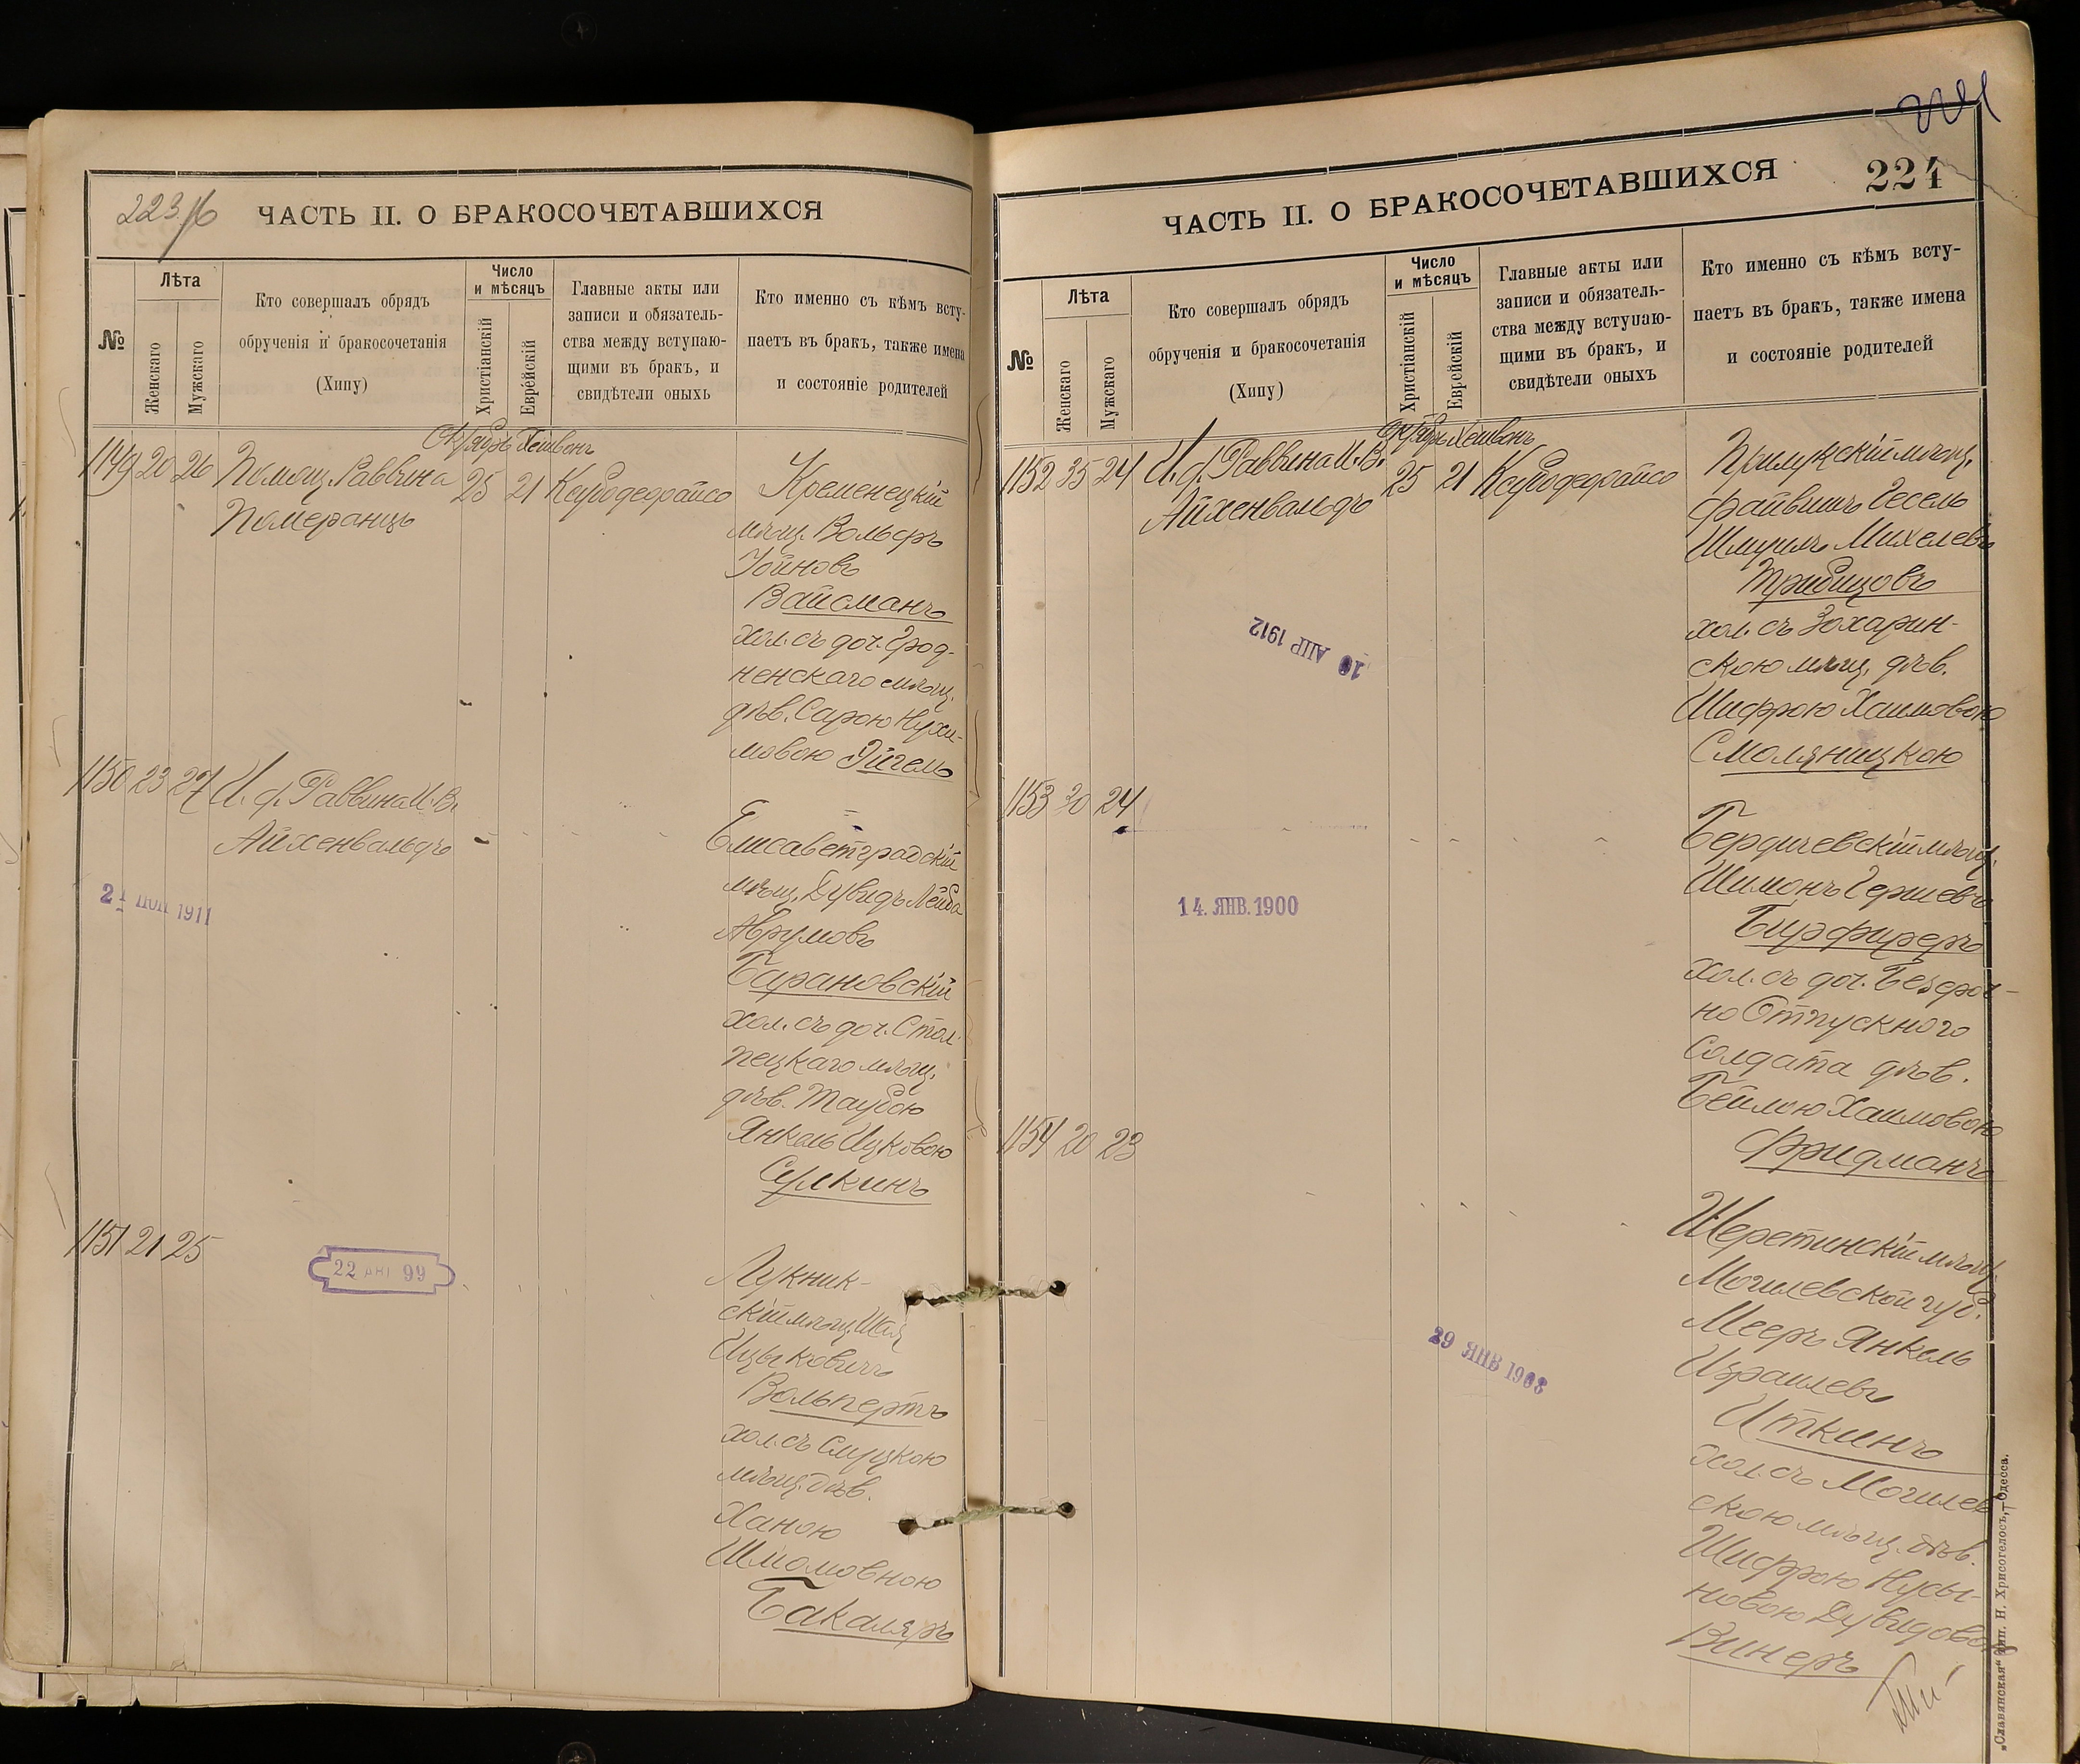 223 об
ЧАСТЬ II. О БРАКОСОЧЕТАВШИХСЯ
№
Лѣта
Женскаго
Мужскаго
Кто совершалъ обрядъ
обрученія и бракосочетанія
(Хипу)
Число
и мѣсяцъ
Христіанскій
Еврейскій
Главные акты или
записи и обязатель-
ства между вступаю-
щими въ бракъ, и
свидѣтели оныхъ
Кто именно съ кѣмъ всту-
паетъ въ бракъ, также имена
и состояніе родителей
Октябрь Хешвонъ
1149 20 26 Помощ. Раввина 25 21
Померанцъ
Кременецкій
мѣщ. Вольфъ
Вайсманъ
хол. съ доч. Грод-
ненскаго мѣщ.
дѣв. Сарою Нухи-
мовою Эйгель
1150 23 27 И. д. Раввина И. В.
Айхенвальдъ
21 1911
Елисаветградскій
мѣщ. Дувидъ Лейба
Аврумовъ
Барановскій
хол. съ доч. Стол-
пецкаго мѣщ.
дѣв. Таубою
Янкель Ицковою
Сулкинъ
1151 21 25
22 99
Лукник-
скій мѣщ. Шая
Ицковичъ
Вольпертъ
хол. съ Слуцкою
мѣщ. дѣв.
Ханою
Шломовною
Бакаляръ
224
ЧАСТЬ II. О БРАКОСОЧЕТАВШИХСЯ
№
Лѣта
Женскаго
Мужскаго
Кто совершалъ обрядъ
обрученія и бракосочетанія
(Хипу)
Число
и мѣсяцъ
Христіанскій
Еврейскій
Главные акты или
записи и обязатель-
ства между вступаю-
щими въ бракъ, и
свидѣтели оныхъ
Кто именно съ кѣмъ всту-
паетъ въ бракъ, также имена
и состояніе родителей
Октябрь Хешвонъ
1152 35 24 И. д. Раввина И. В. 25 21
Айхенвальдъ
Прилукскій мѣщ.
Файвишъ Гесель
Шмуилъ Михелевъ
Трибицовъ
хол. съ Зохарин-
скою мѣщ. дѣв.
Шифрою Хаимовою
Смоляницкою
АПР 1912
1153 30 24
14. ЯНВ. 1900
Бердичевскій мѣщ.
Шимонъ Гершевъ
Бизфиреръ
хол. съ доч. Безсроч-
но Отпускного
Солдата дѣв.
Бейлою Хаимовою
Фридманъ
1154 20 23
29 ЯНВ 1903
Шеретинскій мѣщ.
Могилевской губ.
Мееръ Янкель
Израилевъ
Иткинъ
хол. съ Могилев-
скою мѣщ. дѣв.
Шифрою Нусы-
новою Дувидовою
Винеръ
„Славянская“ тип. Н. Хрисогелосъ, Одесса.